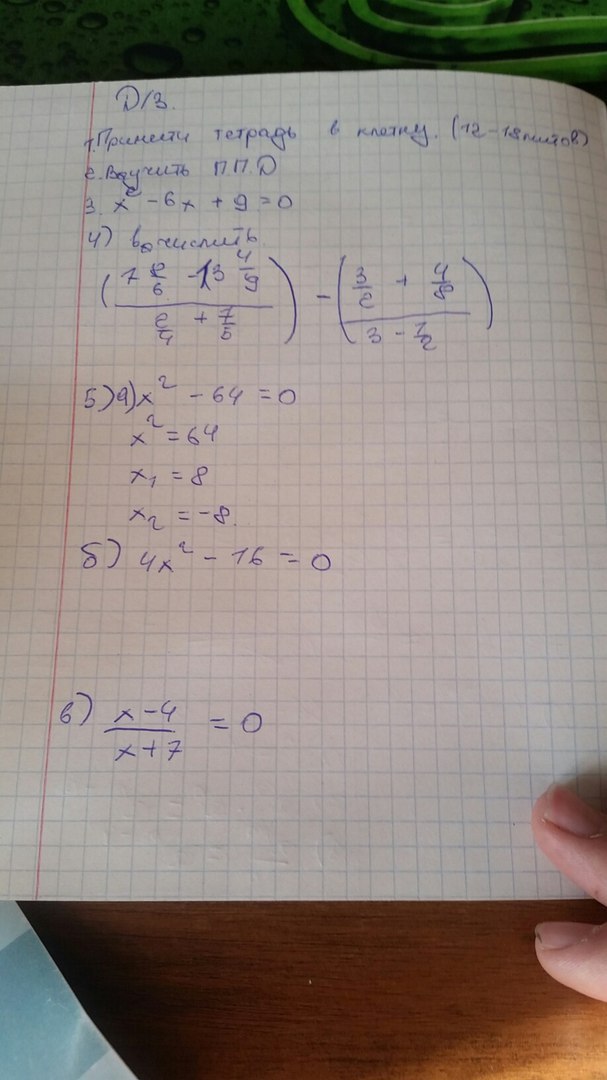 Д/З.
1. Принести тетрадь в клетку. (12-18 листов)
2. Выучить П.П.Д
3. x² - 6x + 9 = 0
4) вычислить.
(7 2/6 - 13 4/9) - (3/2 + 4/8)
2/4 + 7/5 3 - 1/2
5) а) x² - 64 = 0
x² = 64
x₁ = 8
x₂ = -8.
б) 4x² - 16 = 0
в) x-4 = 0
x+7